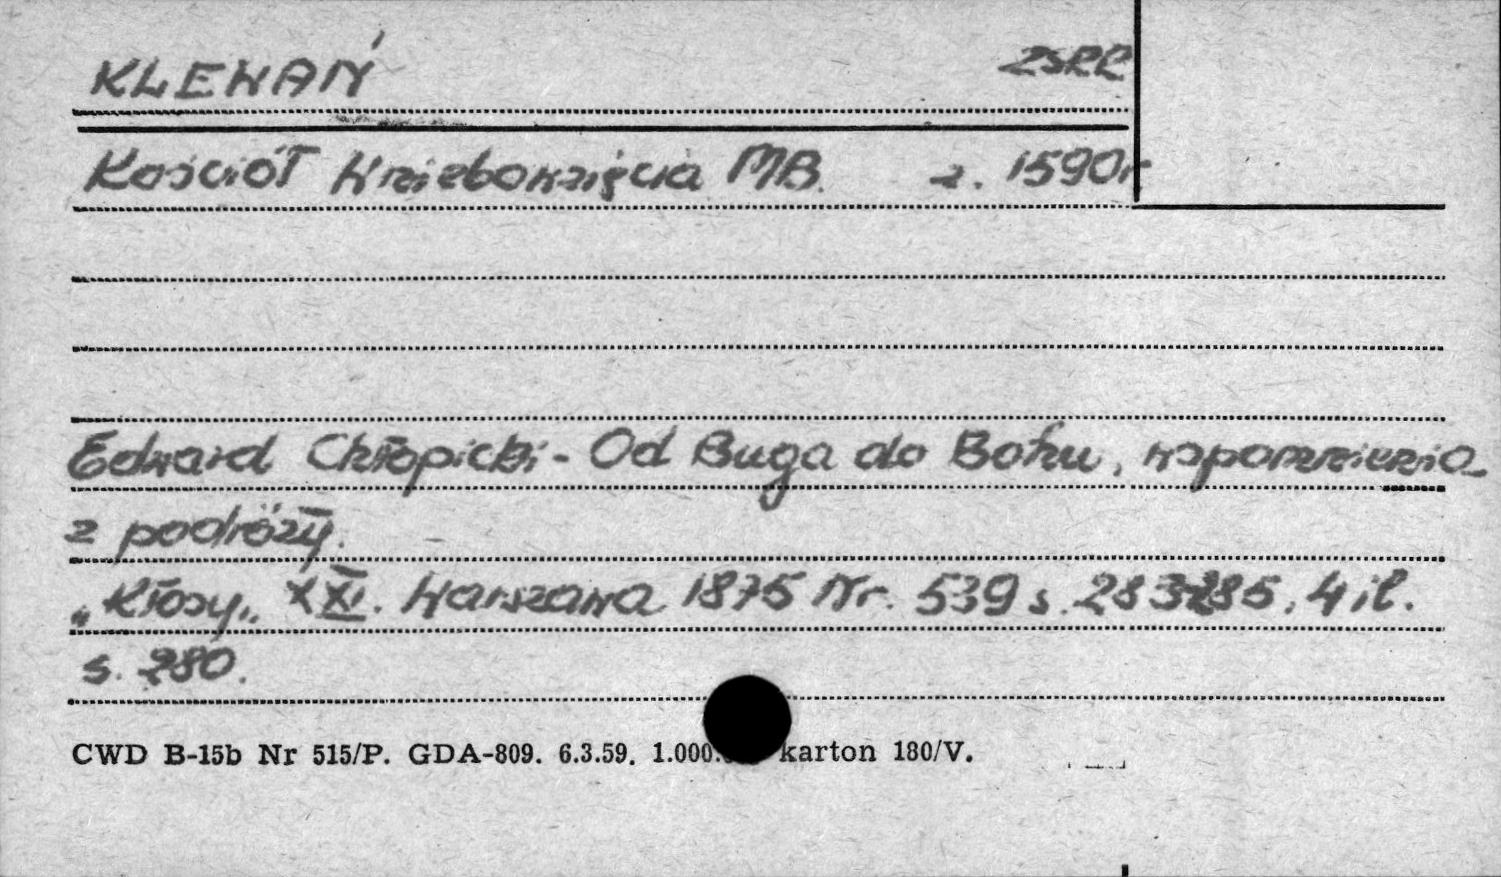 KLEWAŃ ZSRR
Kościół Wniebowzięcia MB. z. 1590r
Edward Chłopicki - Od Buga do Bohu, wspomnienia
z podróży.
"Kłosy" XXI. Warszawa 1875 Nr. 539 s. 283-285, 4 il.
s. 280.
CWD B-15b Nr 515/P. GDA-809. 6.3.59. 1.000. karton 180/V.